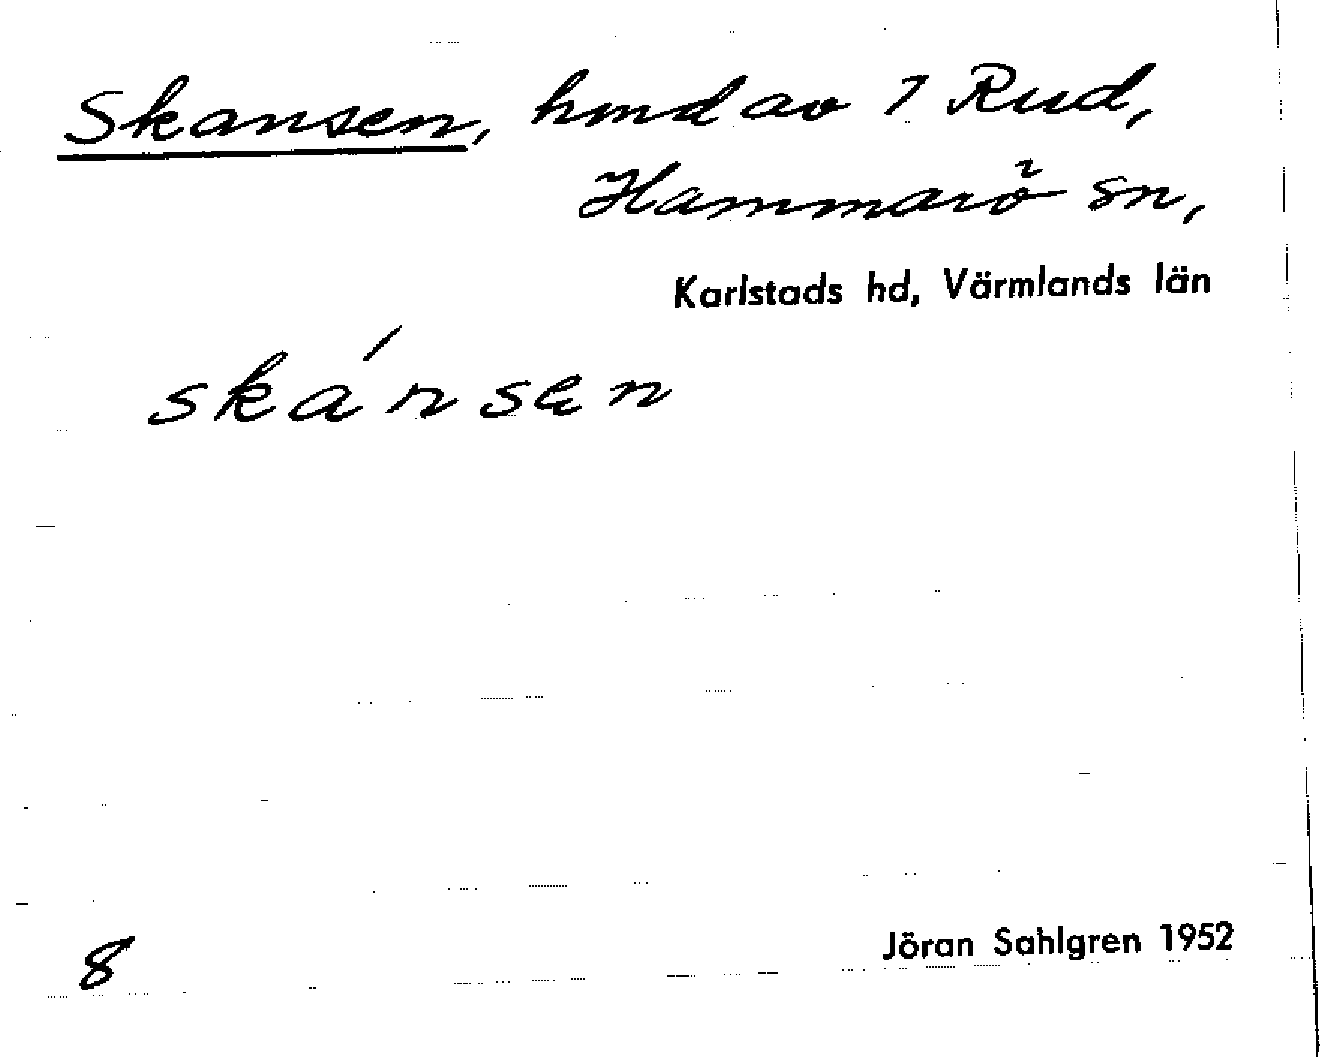 Skansen, hmd av 1 Rud,
Hammarö sn,
Karlstads hd, Värmlands län
skánsen
8
Jöran Sahlgren 1952